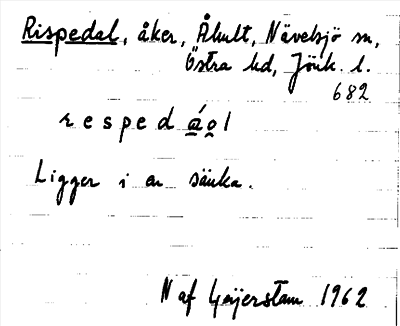 Rispedal, åker, Åhult, Nävelsjö sn,
Östra hd, Jönk. l.
682
respedáol
Ligger i en sänka.
N af Geijerstam 1962